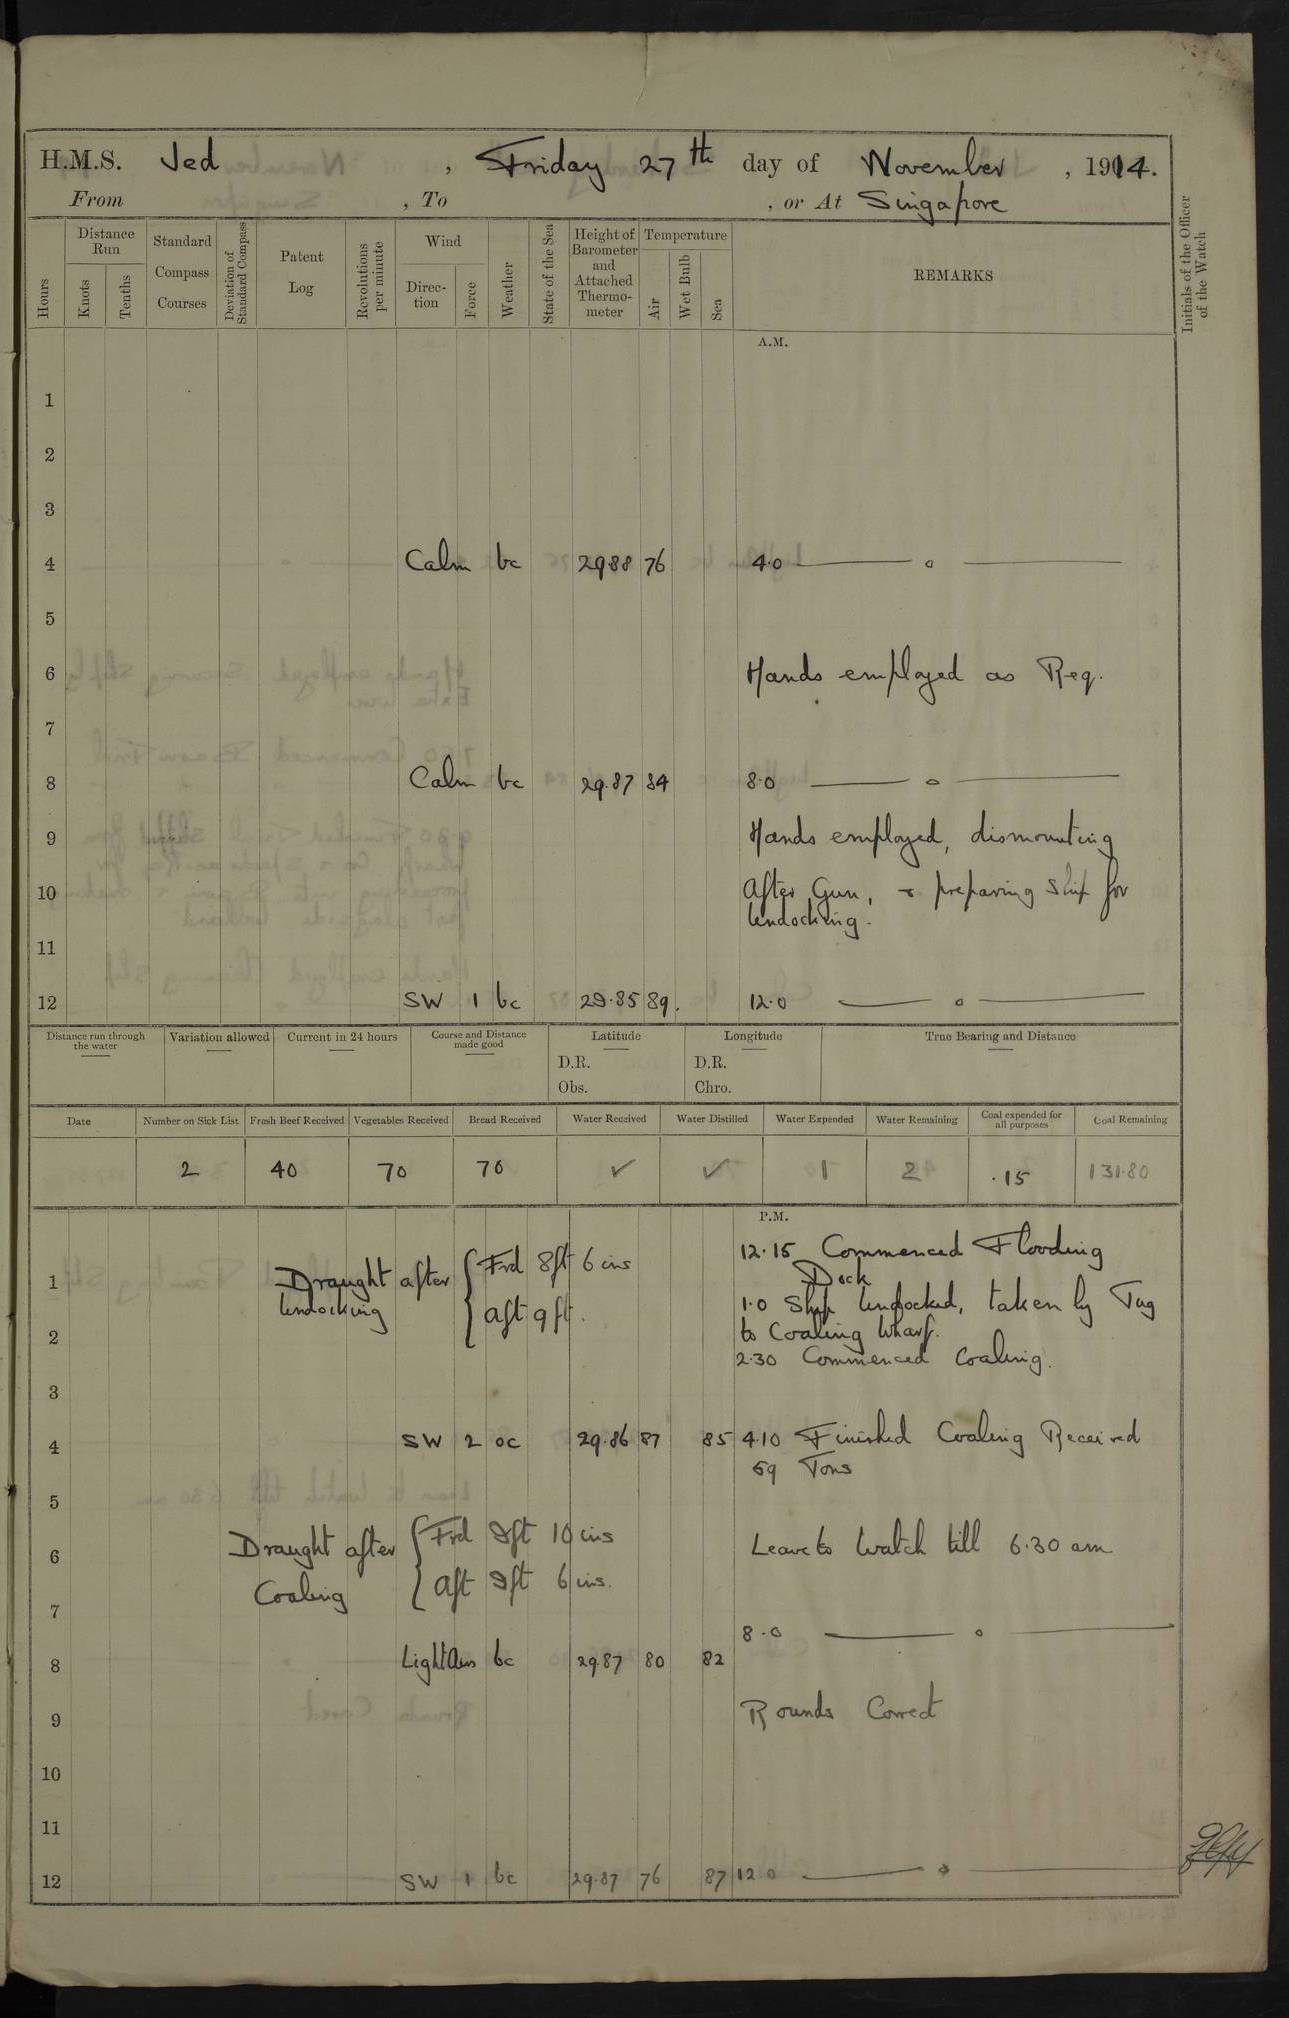 H.M.S. Jed , Friday 27th day of November , 1914.
From , To , or At Singapore
Hours
Distance Run
Knots
Tenths
Standard Compass Courses
Deviation of Standard Compass
Patent Log
Revolutions per minute
Wind
Direc-tion
Force
Weather
State of the Sea
Height of Barometer and Attached Thermo-meter
Temperature
Air
Wet Bulb
Sea
REMARKS
Initials of the Officer of the Watch
A.M.
1
2
3
4 Calm bc 29.88 76 4.0
5
6 Hands employed as Req.
7
8 Calm bc 29.87 84 8.0
9 Hands employed, dismounting
10 After Gun, & preparing Ship for
Undocking.
11
12 SW 1 bc 29.85 89. 12.0
Distance run through the water
Variation allowed
Current in 24 hours
Course and Distance made good
Latitude
D.R.
Obs.
Longitude
D.R.
Chro.
True Bearing and Distance
Date
Number on Sick List
Fresh Beef Received
Vegetables Received
Bread Received
Water Received
Water Distilled
Water Expended
Water Remaining
Coal expended for all purposes
Coal Remaining
2 40 70 70 ✓ ✓ 1 2 .15 131.80
P.M.
12.15 Commenced Flooding
Dock
1 Draught after Undocking { Frd 8ft 6 ins
Aft 9 ft.
1.0 Ship Undocked, taken by Tug
2 to Coaling Wharf.
2.30 Commenced Coaling.
3
4 SW 2 oc 29.86 87 85 4.10 Finished Coaling Received
69 Tons
5
6 Draught after Coaling { Frd 8ft 10 ins
Aft 9ft 6 ins.
Leave to Watch till 6.30 am
7
8.0
8 Light Airs bc 29.87 80 82
9 Rounds Correct
10
11
12 SW 1 bc 29.87 76 87 12.0